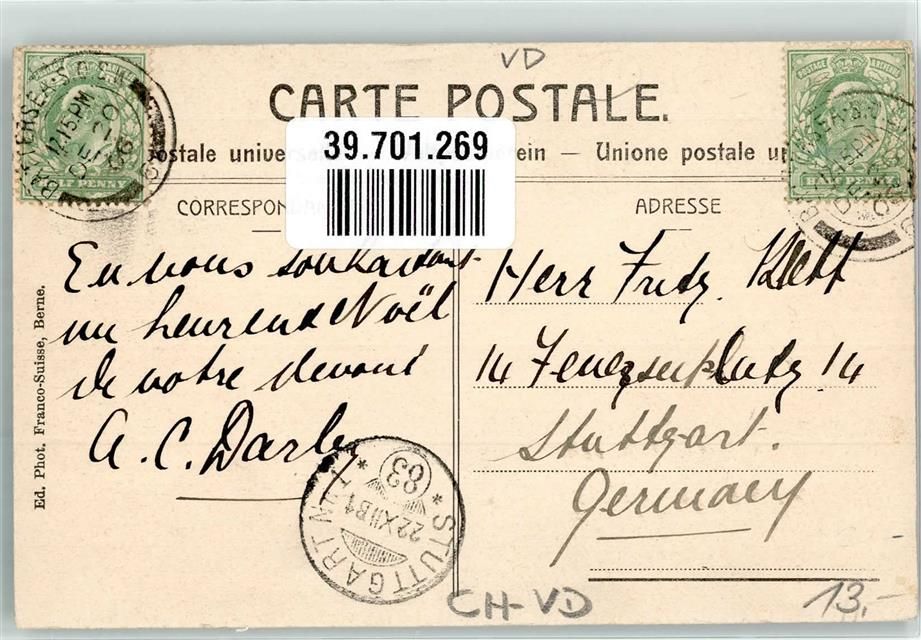 VD
CARTE POSTALE.
39.701.269
postale univer
rein — Unione postale
CORRESPOND
ADRESSE
HALF PENNY
HALF PENNY
POSTAGE
BATTERSEA S.O. S.W
12.15 PM
06
En vous souhaitant
un heureux Noël
de votre devoué
A. C. Darby
Herr Fritz. Klett
14 Feuerseeplatz 14
Stuttgart.
Germany
Ed. Phot. Franco-Suisse, Berne.
STUTTGART
83
22 XII
CH-VD
13,-